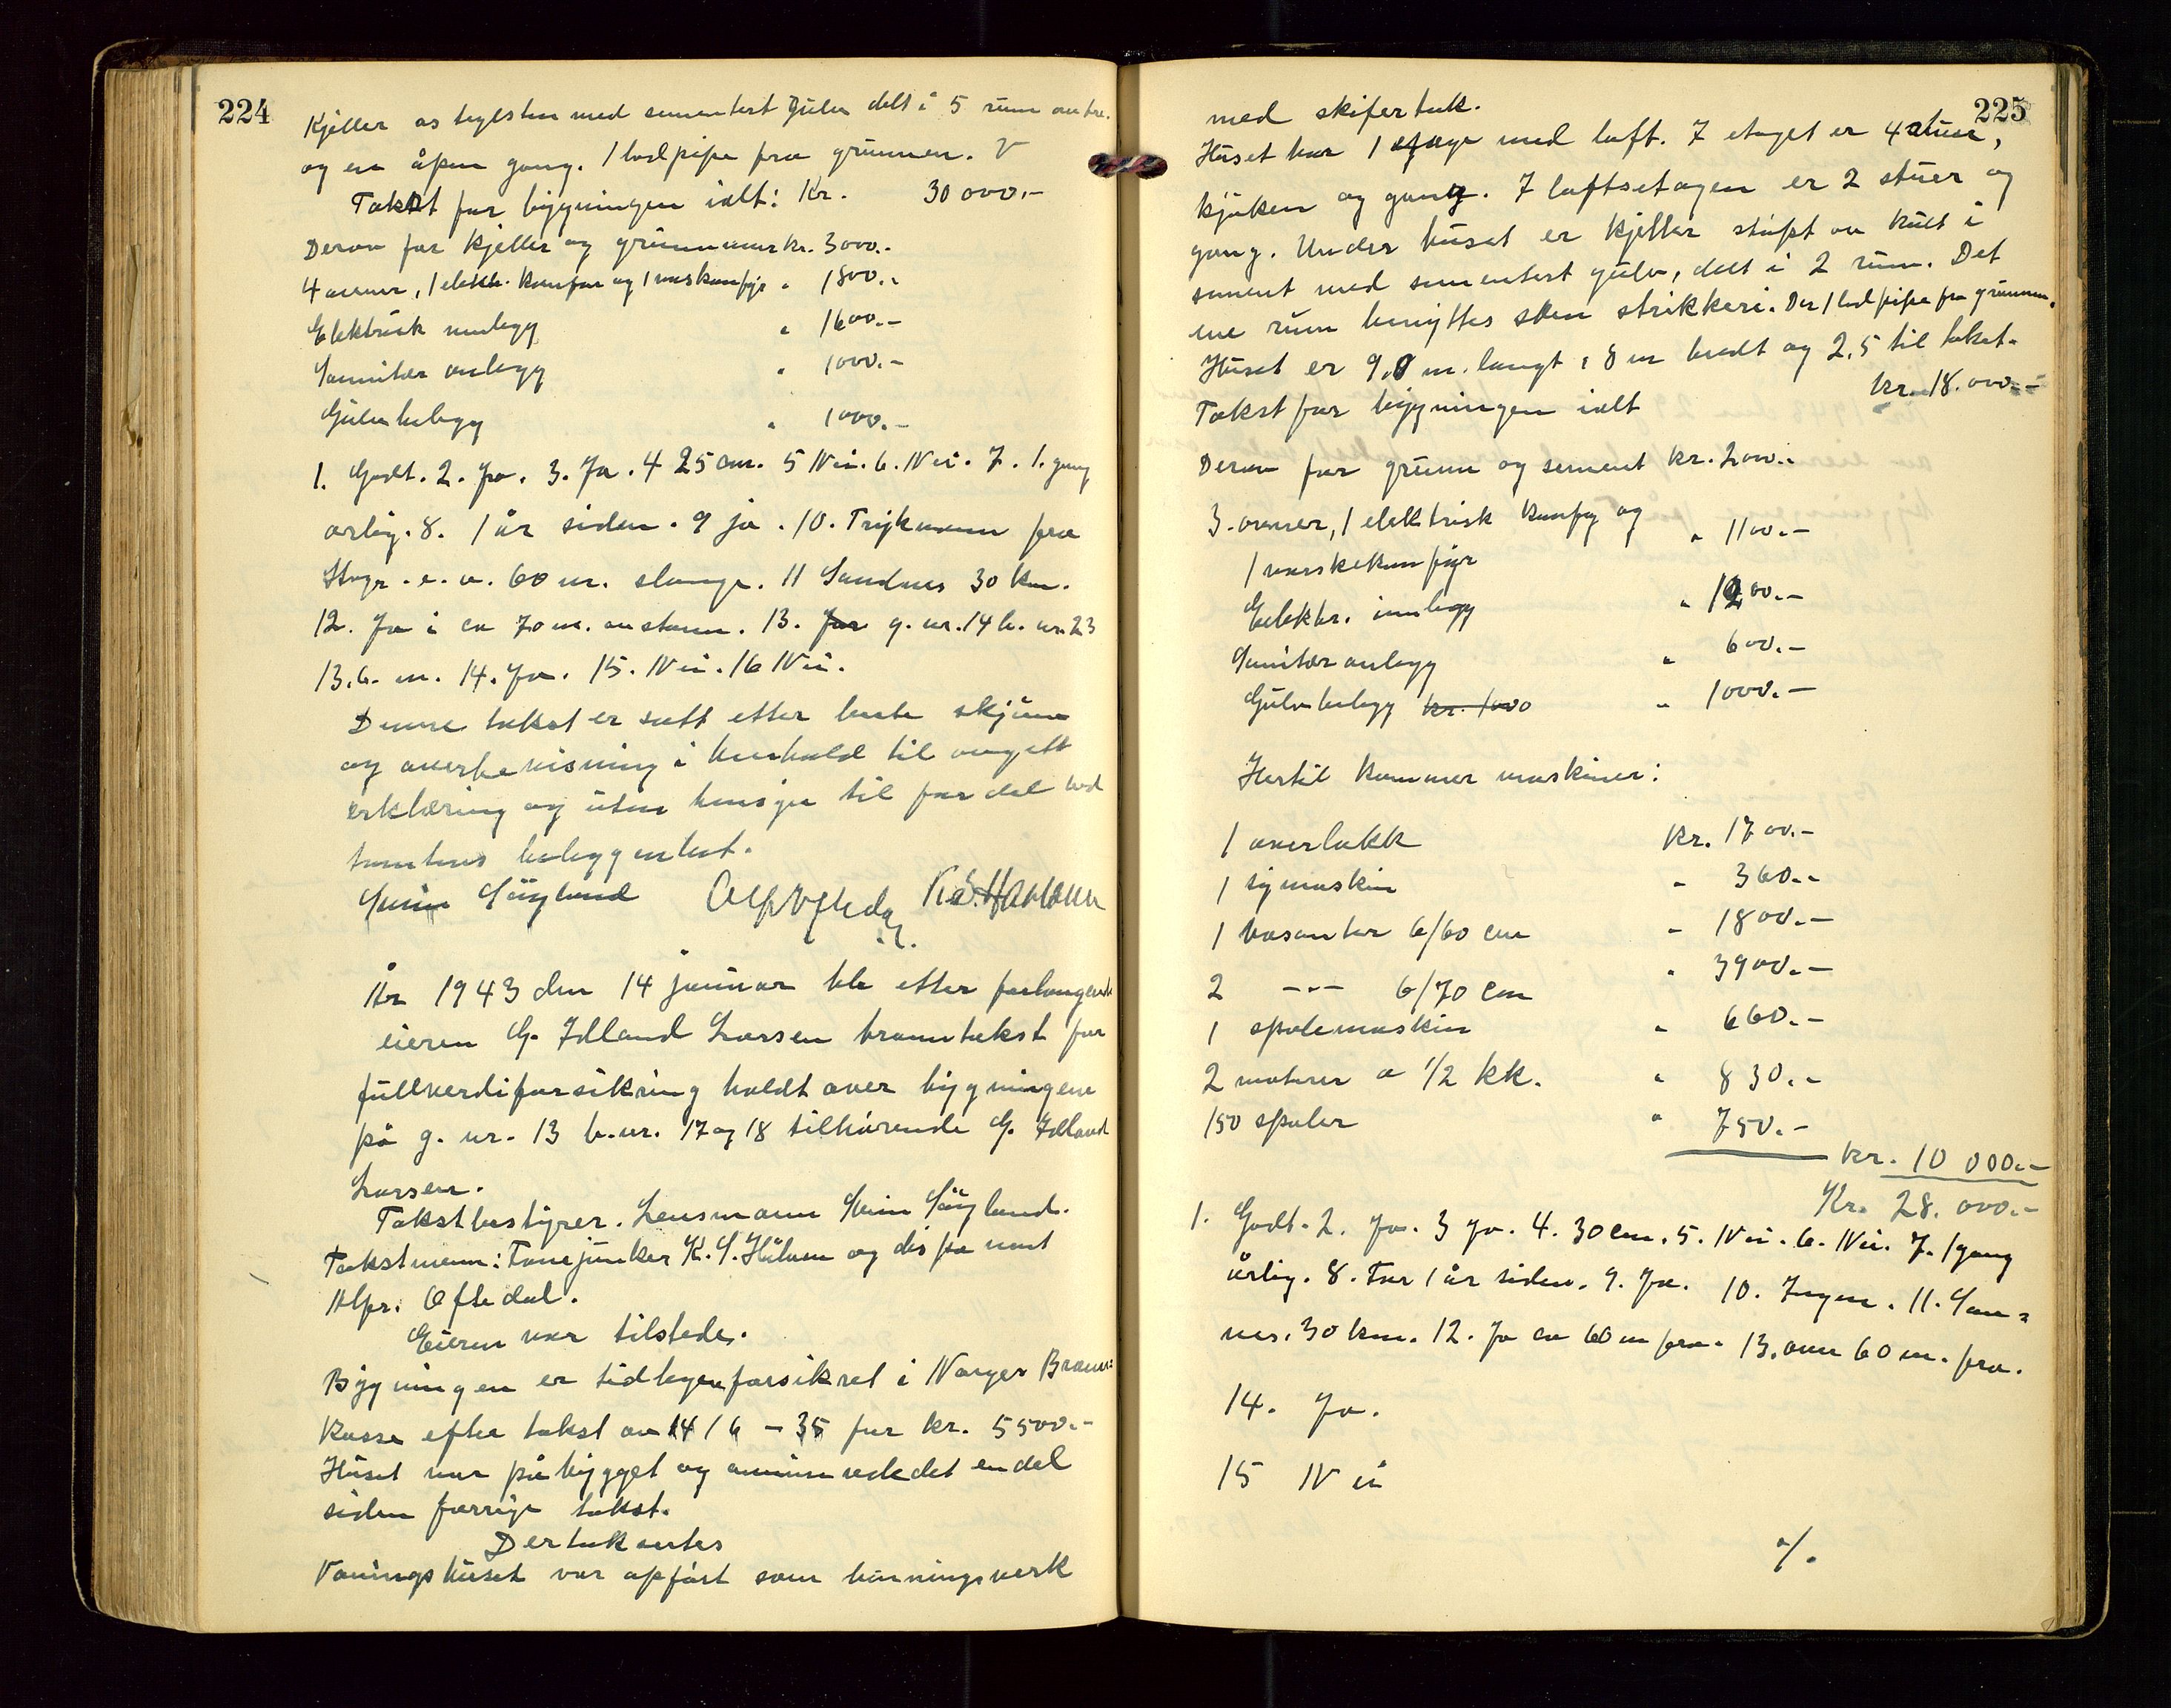 224
Kjeller as teglsten med sementert gulv delt i 5 rum
og en åpen gang. 1 lodpipe fra grunnen. V
Takst for bygningen ialt: Kr. 30 000.-
Derav for kjeller og grunnmur kr. 3000.-
4 ovner, 1 elektr. komfur og 1 vaskomfyr " 1800.-
Elektrisk innlegg " 1600.-
Sanitær anlegg " 1000.-
Gulvbelegg " 1000.-
1. Godt. 2. Ja. 3. Ja. 4 25 cm. 5 Nei. 6. Nei. 7. 1. gang
årlig. 8. 1 år siden. 9 ja. 10. Trykkvann fra
60 m. slange. 11 Sandnes 30 km.
12. Ja i ca 70 m. avstann. 13. g. nr. 14 b. nr. 23
13. 6. m. 14. Ja. 15. Nei. 16 Nei.
Denne takst er satt etter beste skjønn
og overbevisning i henhold til avgitt
erklæring og uten hensyn til fordel ved
tomtens beleggenhet.
Svein Søyland Alfr Oftedal K. S. Håvann
År 1943 den 14 januar ble etter forlangende
eieren G. Idland Larsen branntakst for
fullverdiforsikring holdt over bygningene
på g. nr. 13 b. nr. 17 og 18 tilhørende G. Idland
Larsen.
Takstbestyrer. Lensmann Svein Søyland.
Takstmenn: Fanejunker K. S. Håvann og disponent
Alfr. Oftedal.
Eieren var tilstede.
Bygningen er tidligere forsikret i Norges Brann=
Kasse efter takst av 14/6 - 35 for kr. 5500.-
Huset var påbygget og ominnredet endel
siden forrige takst.
Der takseres
Våningshuset var opført som binningsverk
225
med skifertak.
Huset har 1 etage med loft. I etaget er 4 stuer,
kjøken og gang. I loftsetagen er 2 stuer og
gang. Under huset er kjeller støpt av kult i
sement med sementert gulv, delt i 2 rum. Det
ene rum benyttes som strikkeri. Der 1 lodpipe fra grunnen.
Huset er 9,0 m. langt, 8 m bredt og 2,5 til taket.
Takst for bygningen ialt kr. 18.000.-
Derav for grunn og sement kr. 2000.-
3. ovner, 1 elektrisk komfyr og
1 vaskekomfyr " 1100.-
Elektr. innlegg " 1200.-
Sanitæranlegg " 600.-
Gulvbelegg kr. 1000 " 1000.-
Hertil kommer maskiner:
1 overlokk Kr. 1700.-
1 symaskin " 360.-
1 6/60 cm " 1800.-
2 --- 6/70 cm " 3900.-
1 spolemaskin " 660.-
2 motorer a 1/2 kk. " 830.-
150 spoler " 750.-
kr. 10 000.-
Kr. 28. 000.-
1. Godt. 2. Ja. 3 Ja. 4. 30 cm. 5. Nei. 6. Nei. 7. 1 gang
årlig. 8. For 1 år siden. 9. Ja. 10. Ingen. 11. San=
nes. 30 km. 12. Ja ca 60 m fra. 13. over 60 m. fra.
14. Ja.
15 Nei
%.